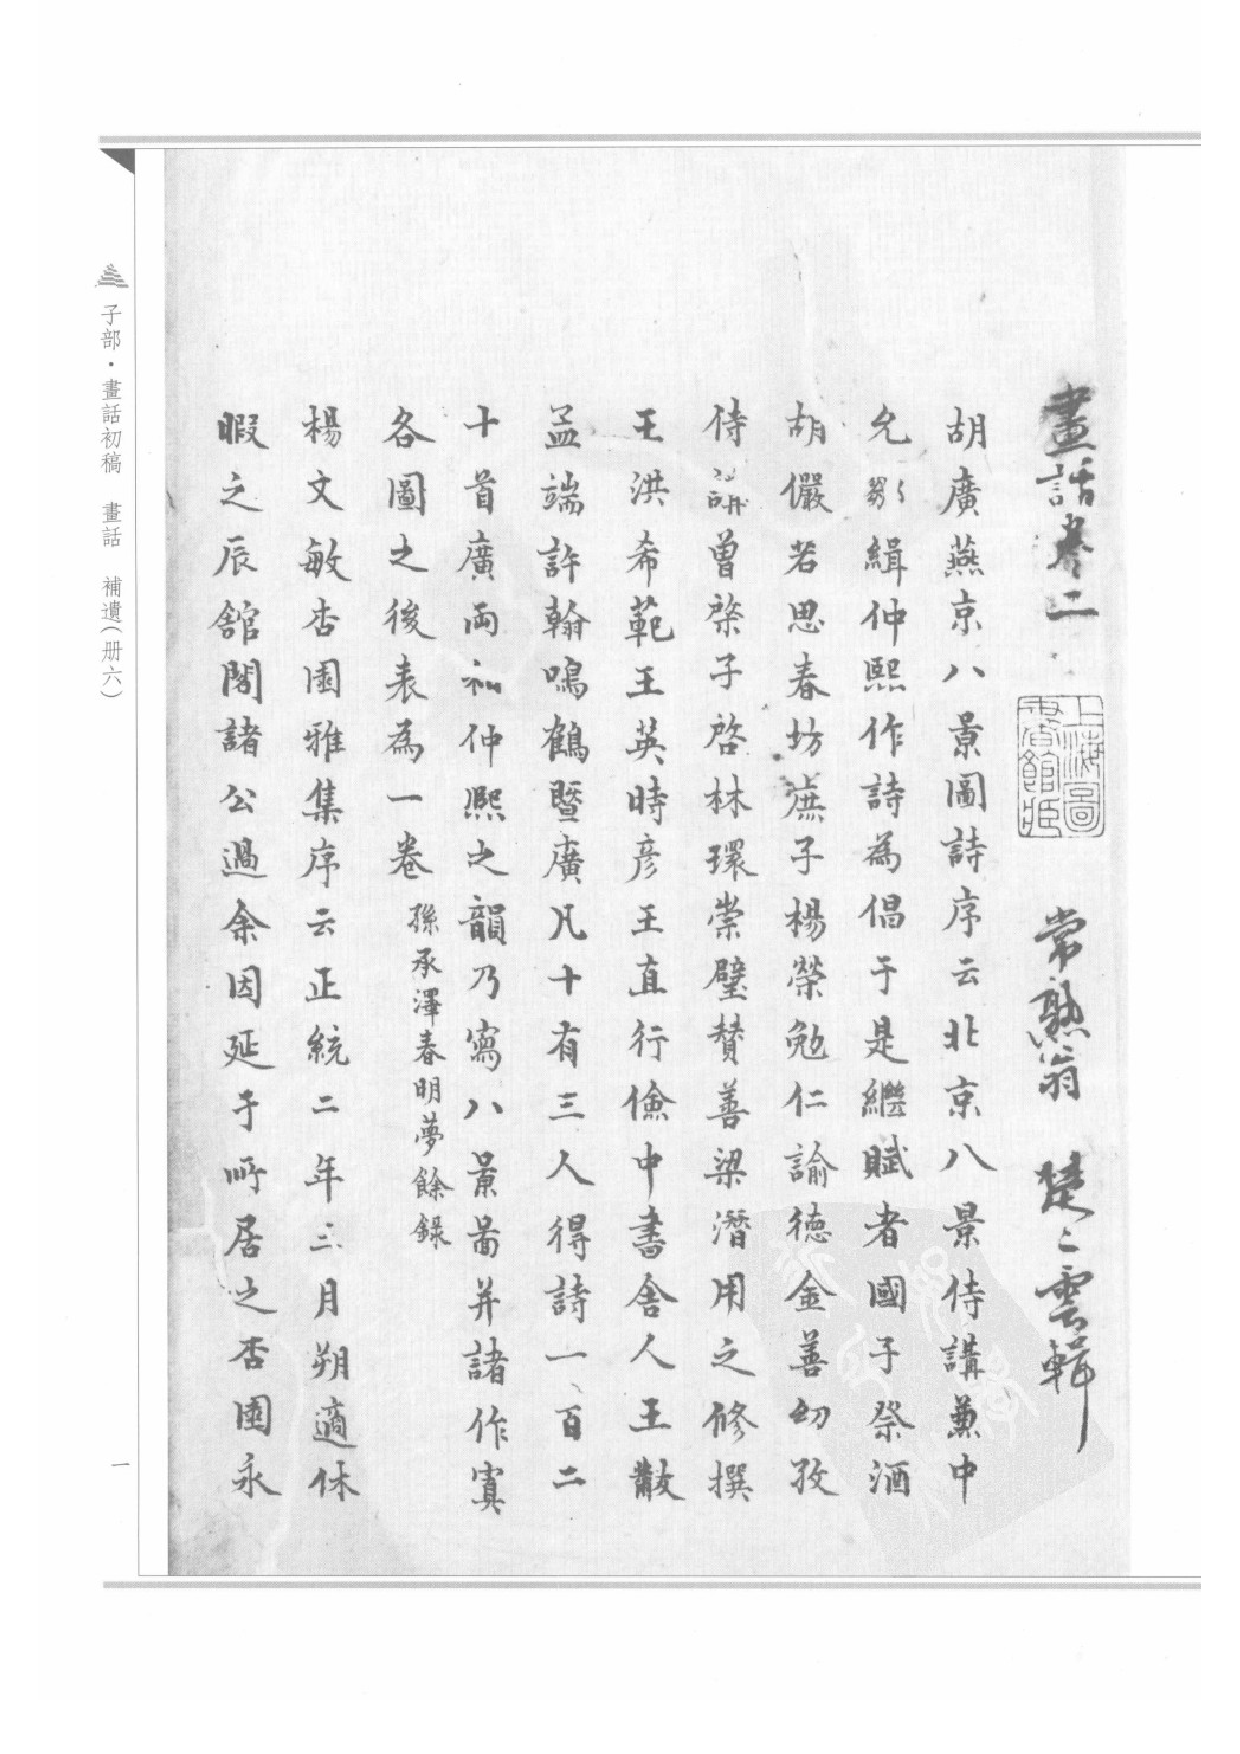 畫話卷二
上海圖書館藏
常熟翁
楚〻雲輯
胡廣燕京八景圖詩序云北京八景侍講兼中
允鄒緝仲熙作詩為倡于是繼賦者國子祭酒
胡儼若思春坊庶子楊榮勉仁諭德金善幼孜
侍講曾棨子啓林環崇璧贊善梁潛用之修撰
王洪希範王英時彥王直行儉中書舍人王黻
孟端許翰鳴鶴曁廣凡十有三人得詩一百二
十首廣兩和仲熙之韻乃寫八景啚并諸作寘
各圖之後表為一卷 孫承澤春明夢餘錄
楊文敏杏園雅集序云正統二年三月朔適休
暇之辰舘閣諸公過余因延于所居之杏園永
子部·畫話初稿 畫話 補遺(册六)
一